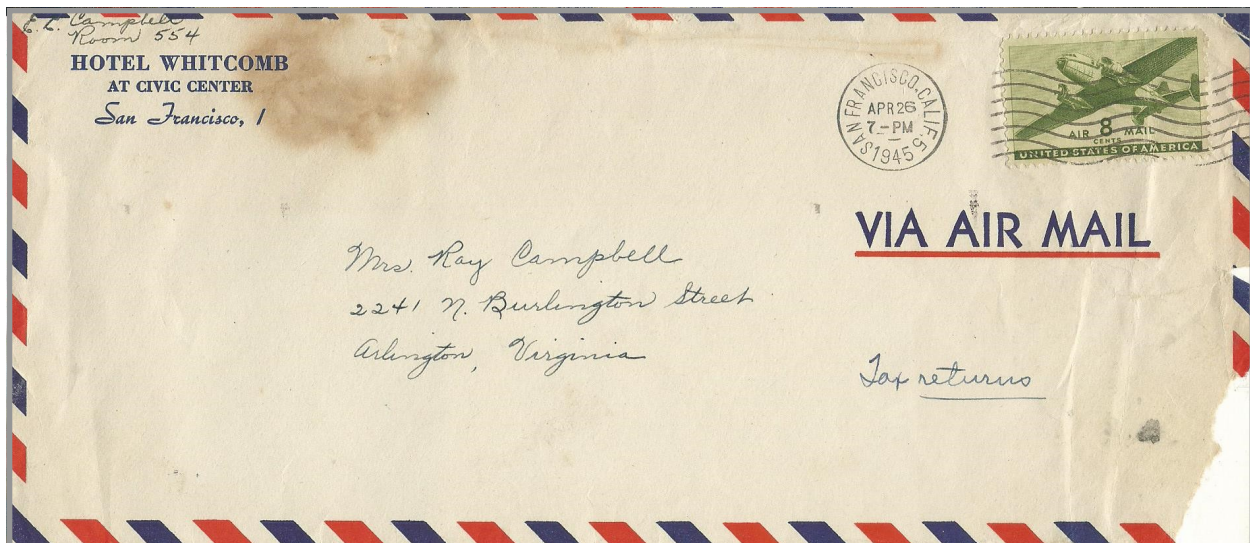 E. L. Campbell
Room 554
HOTEL WHITCOMB
AT CIVIC CENTER
San Francisco, 1
SAN FRANCISCO, CALIF. 5
APR 26
7 - PM
1945
AIR 8 MAIL
CENTS
UNITED STATES OF AMERICA
VIA AIR MAIL
Mrs. Ray Campbell
2241 N. Burlington Street
Arlington, Virginia
Tax returns